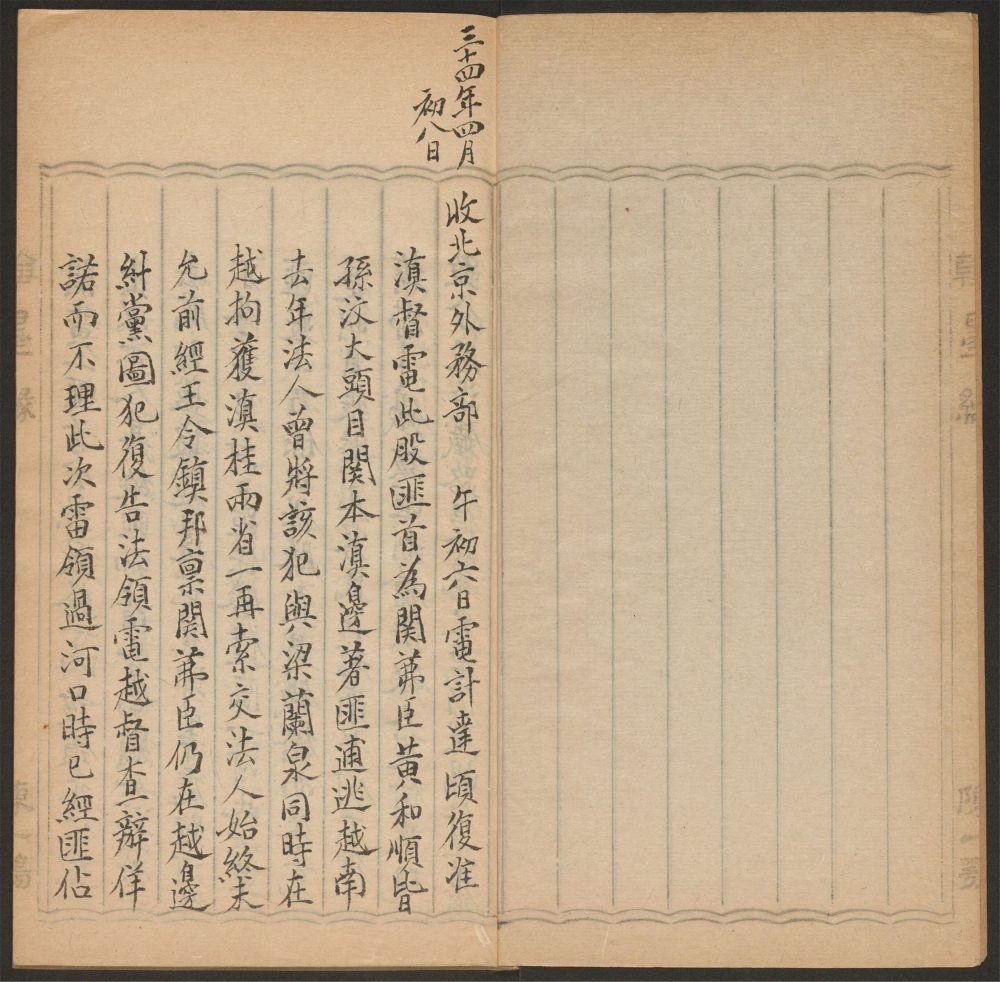 三十四年四月
初八日
收北京外務部　午初六日電計達頃復准
滇督電此股匪首為関苐臣黄和順皆
孫汶大頭目関本滇邊著匪逋逃越南
去年法人曾將該犯與梁蘭泉同時在
越拘獲滇桂兩省一再索交法人始終未
允前經王令鎮邦禀関苐臣仍在越邊
糾黨圖犯復告法領電越督查辦佯
諾而不理此次雷領過河口時已經匪佔